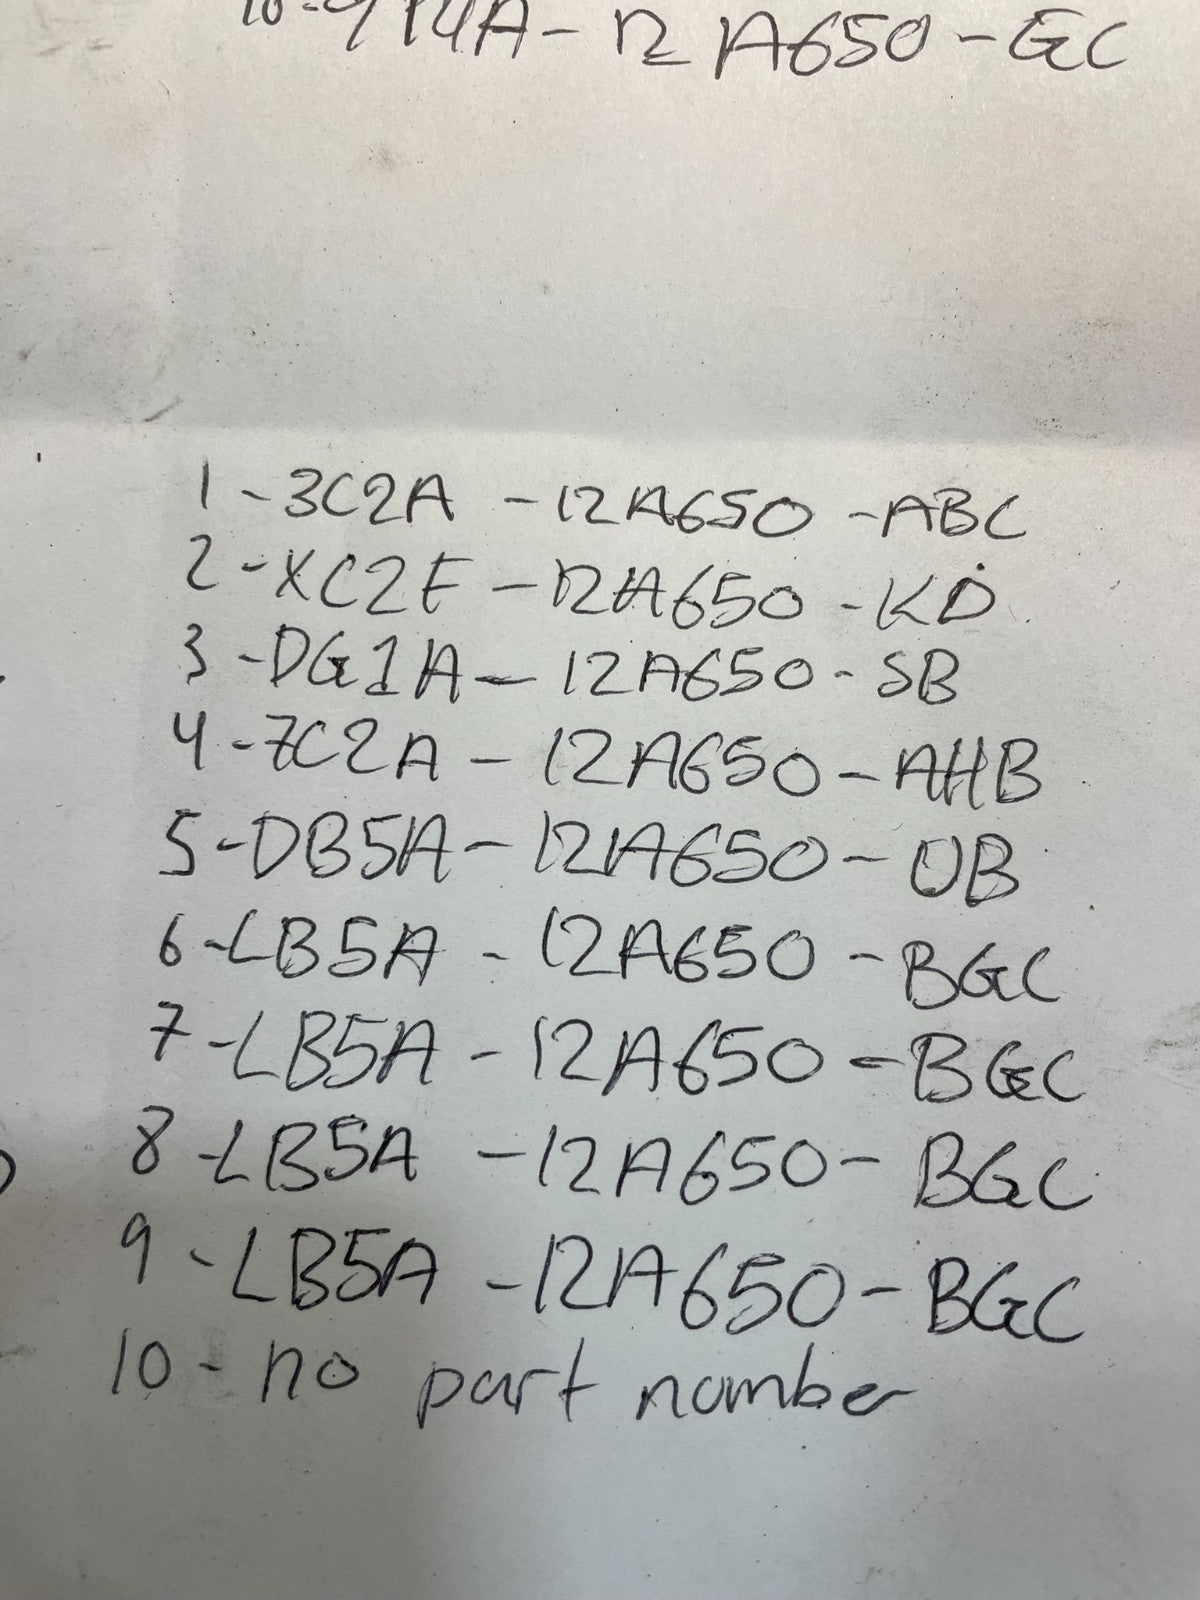 10-9T4A-12A650-GC
1-3C2A-12A650-ABC
2-XC2F-12A650-KD
3-DG1A-12A650-SB
4-7C2A-12A650-AHB
5-DB5A-12A650-UB
6-LB5A-12A650-BGC
7-LB5A-12A650-BGC
8-LB5A-12A650-BGC
9-LB5A-12A650-BGC
10-no part number